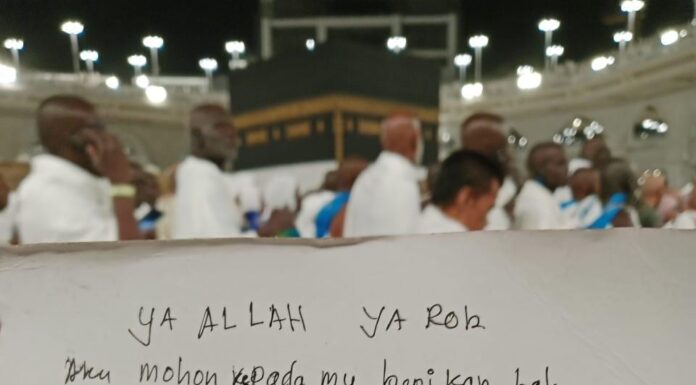 YA ALLAH YA Rob
Aku mohon kepada mu berikan